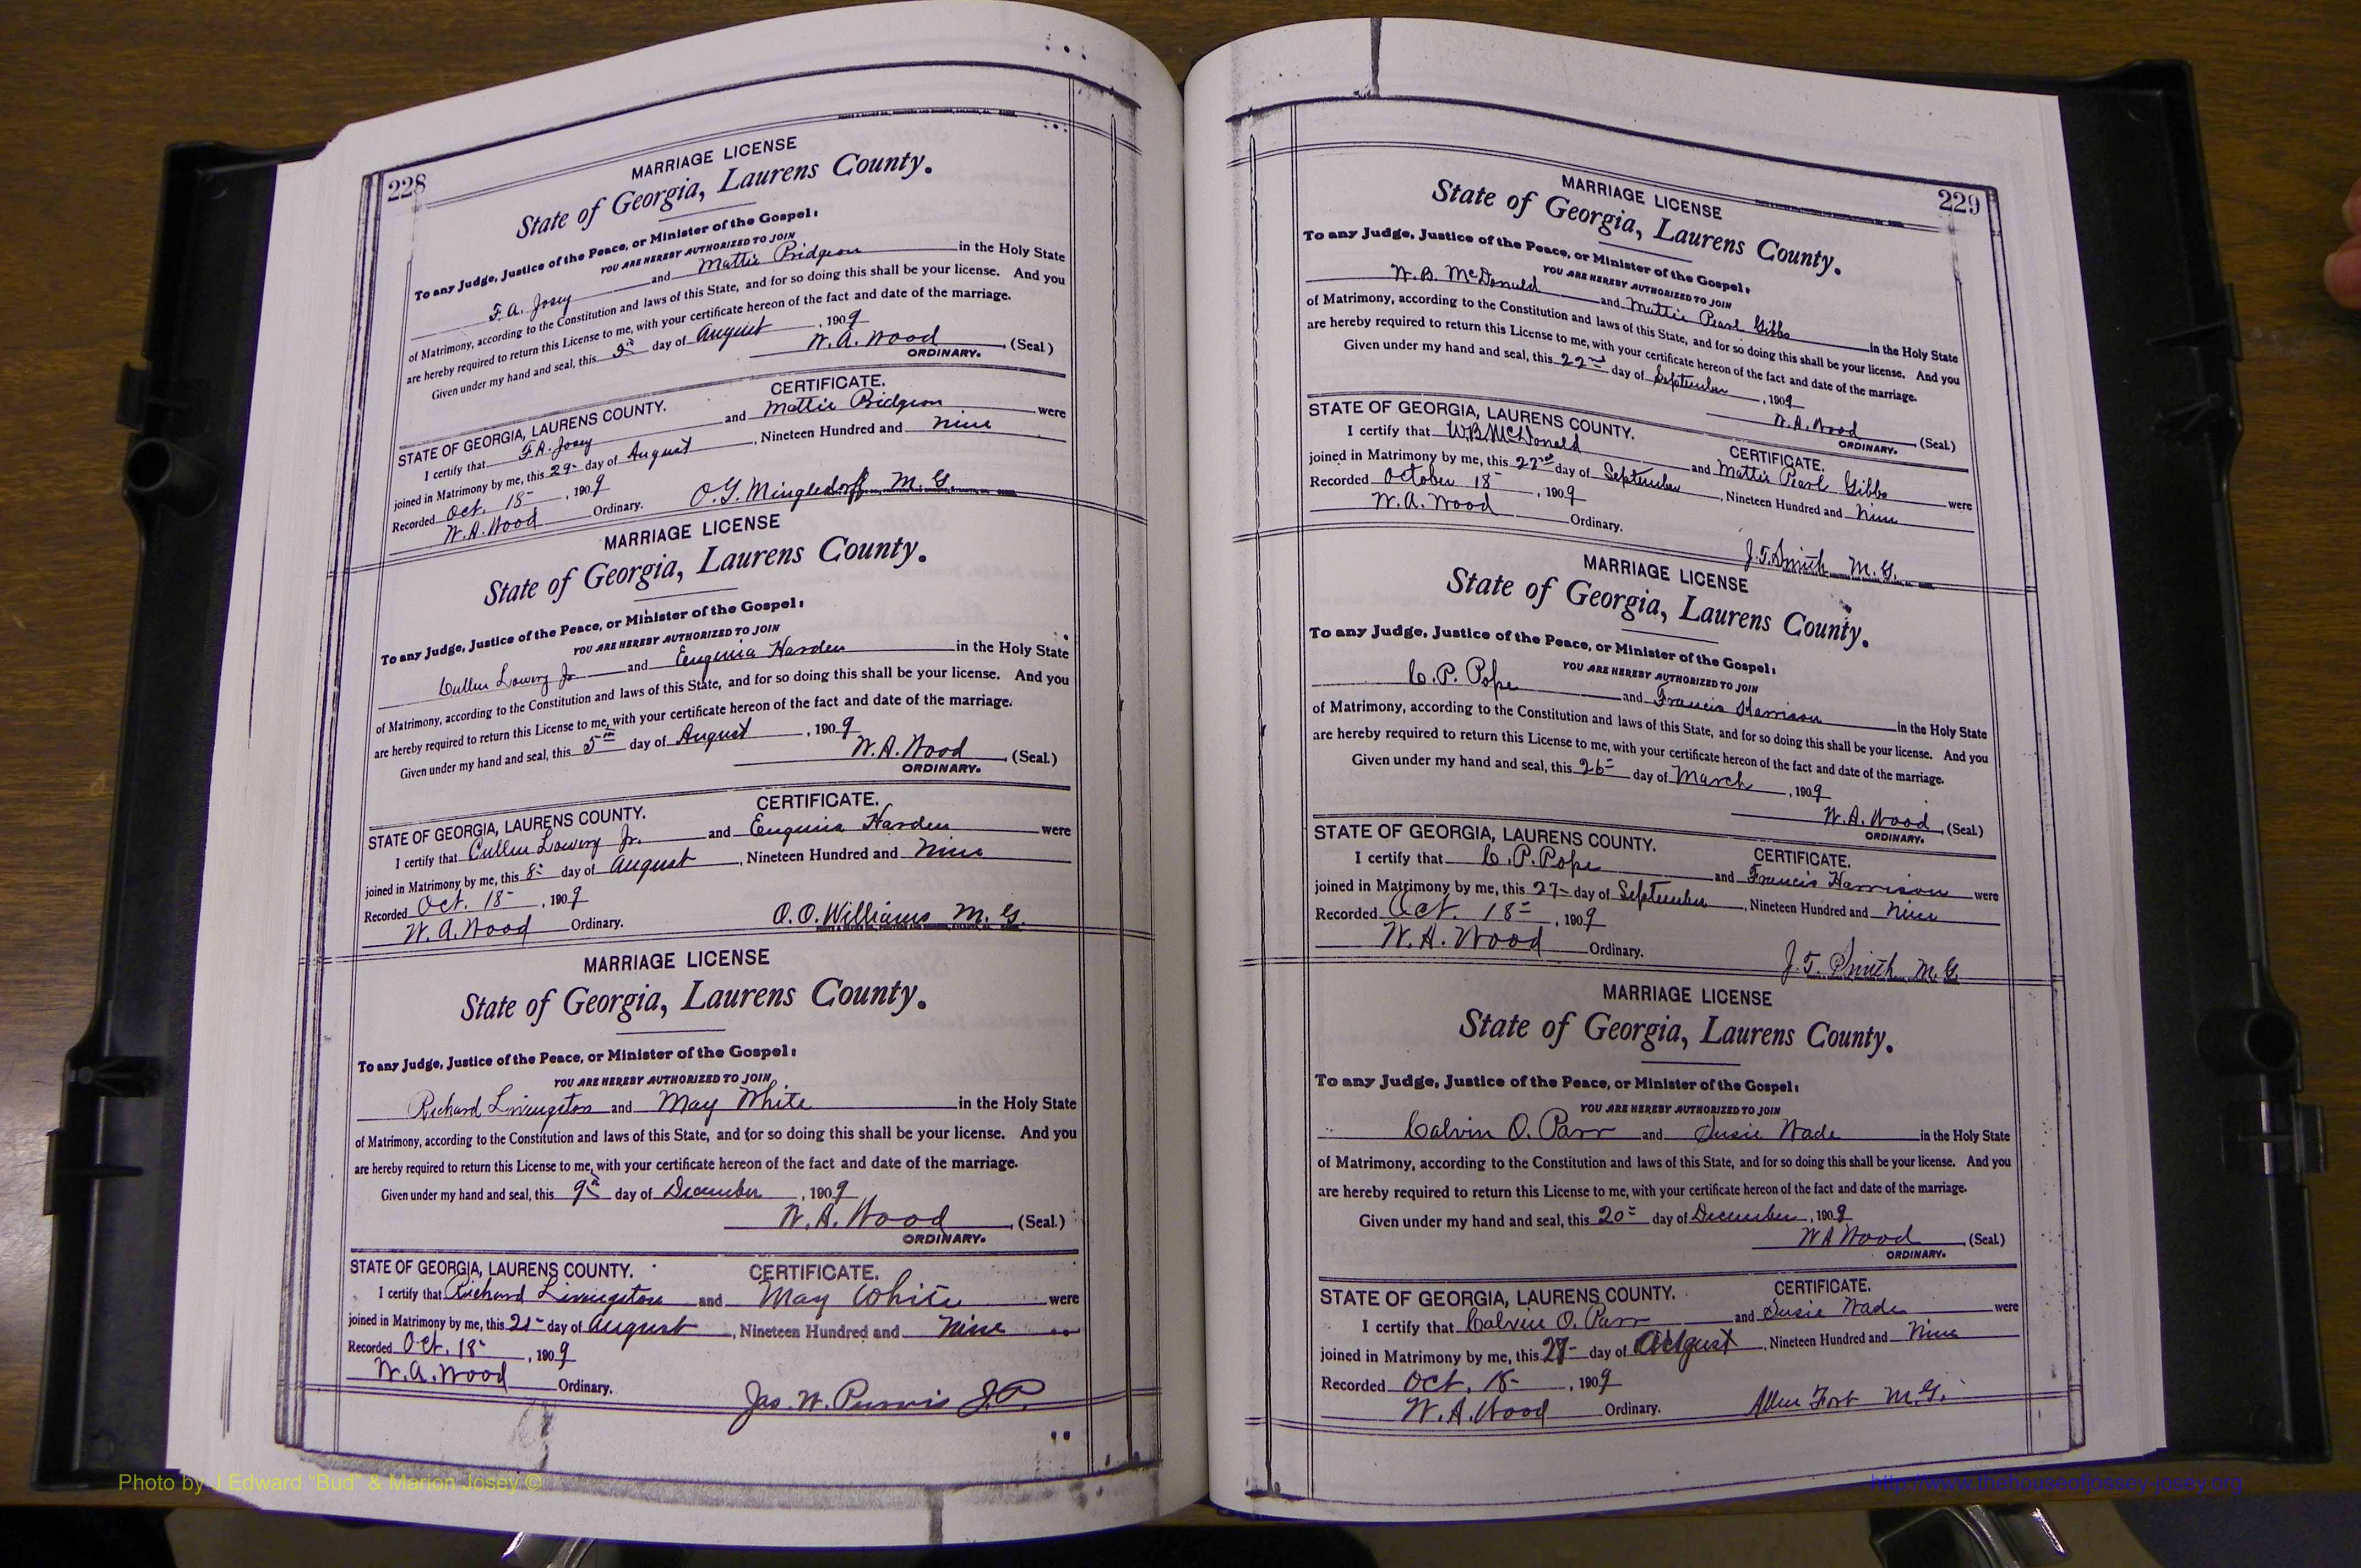 228
MARRIAGE LICENSE
State of Georgia, Laurens County.
To any Judge, Justice of the Peace, or Minister of the Gospel:
YOU ARE HEREBY AUTHORIZED TO JOIN
F. A. Josey and Mattie Pridgeon in the Holy State
of Matrimony, according to the Constitution and laws of this State, and for so doing this shall be your license. And you
are hereby required to return this License to me, with your certificate hereon of the fact and date of the marriage.
Given under my hand and seal, this day of August, 1909
W. A. Wood (Seal.)
ORDINARY.
CERTIFICATE.
STATE OF GEORGIA, LAURENS COUNTY.
I certify that F. A. Josey and Mattie Pridgeon were
joined in Matrimony by me, this 29- day of August, Nineteen Hundred and Nine
Recorded Oct. 18-, 1909
W. A. Wood Ordinary. O. G. Mingledorff M. G.
MARRIAGE LICENSE
State of Georgia, Laurens County.
To any Judge, Justice of the Peace, or Minister of the Gospel:
YOU ARE HEREBY AUTHORIZED TO JOIN
Cullen Lowery Jr and Eugenia Harden in the Holy State
of Matrimony, according to the Constitution and laws of this State, and for so doing this shall be your license. And you
are hereby required to return this License to me, with your certificate hereon of the fact and date of the marriage.
Given under my hand and seal, this 5th day of August, 1909
W. A. Wood (Seal.)
ORDINARY.
CERTIFICATE.
STATE OF GEORGIA, LAURENS COUNTY.
I certify that Cullen Lowery Jr. and Eugenia Harden were
joined in Matrimony by me, this 8- day of August, Nineteen Hundred and Nine
Recorded Oct. 18-, 1909
W. A. Wood Ordinary. O. O. Williams M. G.
MARRIAGE LICENSE
State of Georgia, Laurens County.
To any Judge, Justice of the Peace, or Minister of the Gospel:
YOU ARE HEREBY AUTHORIZED TO JOIN
Richard Livingston and May White in the Holy State
of Matrimony, according to the Constitution and laws of this State, and for so doing this shall be your license. And you
are hereby required to return this License to me, with your certificate hereon of the fact and date of the marriage.
Given under my hand and seal, this 9th day of December, 1909
W. A. Wood (Seal.)
ORDINARY.
STATE OF GEORGIA, LAURENS COUNTY. CERTIFICATE.
I certify that Richard Livingston and May White were
joined in Matrimony by me, this 21- day of August, Nineteen Hundred and Nine
Recorded Oct. 18-, 1909
W. A. Wood Ordinary.
Jas. W. Purvis J. P.
229
MARRIAGE LICENSE
State of Georgia, Laurens County.
To any Judge, Justice of the Peace, or Minister of the Gospel:
YOU ARE HEREBY AUTHORIZED TO JOIN
W. B. McDonald and Mattie Pearl Gibbs in the Holy State
of Matrimony, according to the Constitution and laws of this State, and for so doing this shall be your license. And you
are hereby required to return this License to me, with your certificate hereon of the fact and date of the marriage.
Given under my hand and seal, this 22nd day of September, 1909
W. A. Wood (Seal.)
ORDINARY.
STATE OF GEORGIA, LAURENS COUNTY. CERTIFICATE.
I certify that W. B. McDonald and Mattie Pearl Gibbs were
joined in Matrimony by me, this 22nd day of September, Nineteen Hundred and Nine
Recorded October 18-, 1909
W. A. Wood Ordinary.
J. T. Smith M. G.
MARRIAGE LICENSE
State of Georgia, Laurens County.
To any Judge, Justice of the Peace, or Minister of the Gospel:
YOU ARE HEREBY AUTHORIZED TO JOIN
C. P. Pope and Francis Harrison in the Holy State
of Matrimony, according to the Constitution and laws of this State, and for so doing this shall be your license. And you
are hereby required to return this License to me, with your certificate hereon of the fact and date of the marriage.
Given under my hand and seal, this 26- day of March, 1909
W. A. Wood (Seal.)
ORDINARY.
STATE OF GEORGIA, LAURENS COUNTY. CERTIFICATE.
I certify that C. P. Pope and Francis Harrison were
joined in Matrimony by me, this 27- day of September, Nineteen Hundred and Nine
Recorded Oct. 18-, 1909
W. A. Wood Ordinary.
J. T. Smith M. G.
MARRIAGE LICENSE
State of Georgia, Laurens County.
To any Judge, Justice of the Peace, or Minister of the Gospel:
YOU ARE HEREBY AUTHORIZED TO JOIN
Calvin O. Parr and Susie Wade in the Holy State
of Matrimony, according to the Constitution and laws of this State, and for so doing this shall be your license. And you
are hereby required to return this License to me, with your certificate hereon of the fact and date of the marriage.
Given under my hand and seal, this 20- day of December, 1909
W A Wood (Seal.)
ORDINARY.
STATE OF GEORGIA, LAURENS COUNTY. CERTIFICATE.
I certify that Calvin O. Parr and Susie Wade were
joined in Matrimony by me, this day of August, Nineteen Hundred and Nine
Recorded Oct. 18-, 1909
W. A. Wood Ordinary. Allen Fort M. G.
Photo by J Edward "Bud" & Marion Josey ©
http://www.thehouseofjossey-josey.org